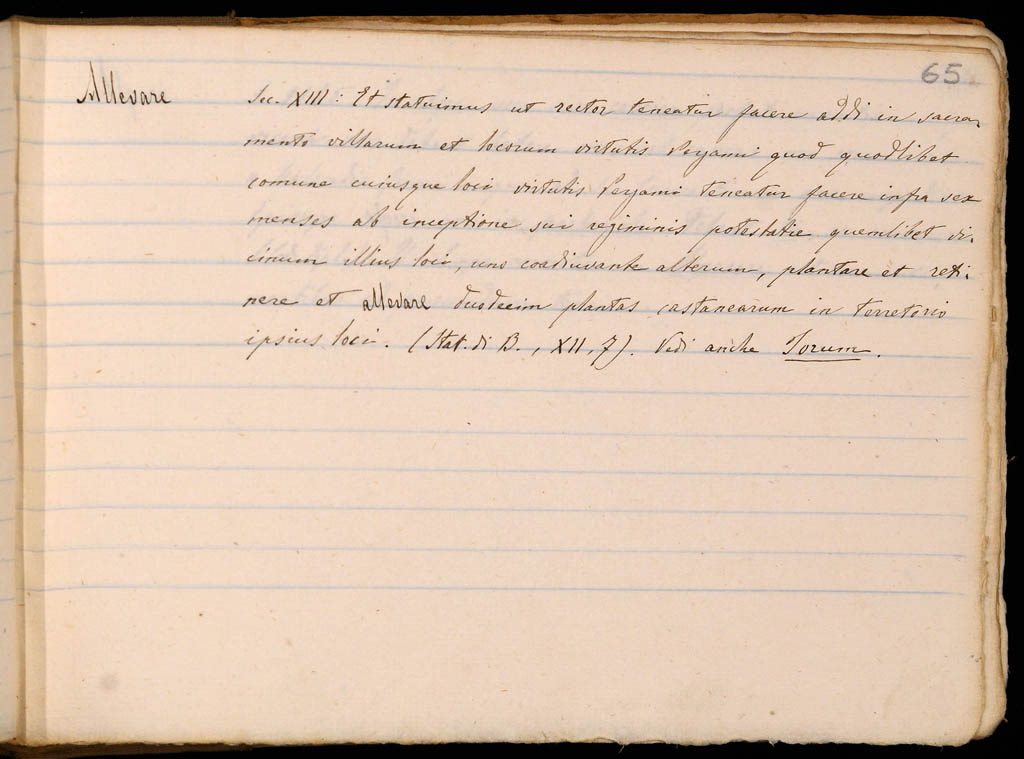 65
Allevare Sec. XIII: Et statuimus ut rector teneatur facere addi in sacra-
mento villarum et locorum virtutis Pergami quod quodlibet
comune cuiusque loci virtutis Pergami teneatur facere infra sex
menses ab inceptione sui regiminis potestatie quemlibet vi-
cinum illius loci, uno coadiuvante alterum, plantare et reti-
nere et allevare duodecim plantas castanearum in terretorio
ipsius loci. (Stat. di B., XII, 7). Vedi anche Iorum.